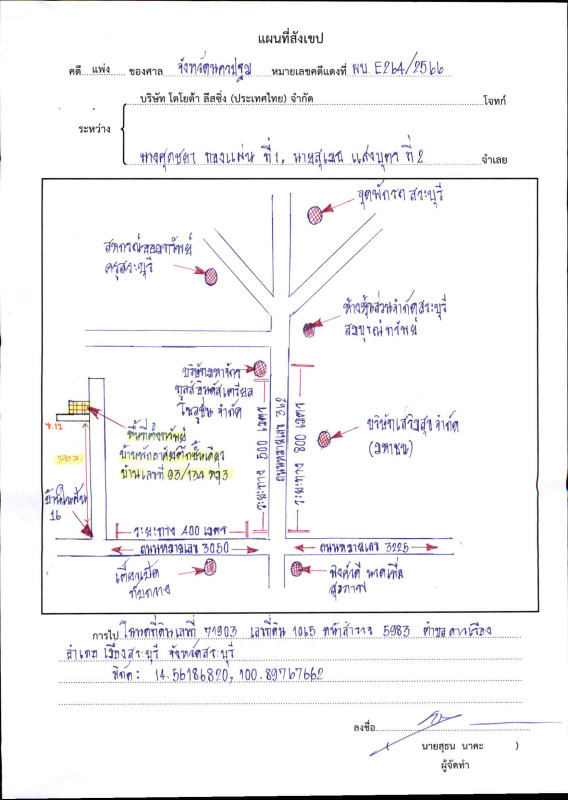 แผนที่สังเขป
คดี แพ่ง ของศาล จังหวัดนครปฐม หมายเลขคดีแดงที่ ผบ. E264/2566
บริษัท โตโยต้า ลีสซิ่ง (ประเทศไทย) จำกัด โจทก์
ระหว่าง
ที่ 1, นายสุเมธ แสงบุตร ที่ 2 จำเลย
จุดพักรถ สระบุรี
สหกรณ์ออมทรัพย์
ครูสระบุรี
ห้างหุ้นส่วนจำกัดสระบุรี
สมบูรณ์ทรัพย์
บริษัทมหาจักร
จำกัด
ระยะทาง 500 เมตร
ถนนหมายเลข 362
ระยะทาง 800 เมตร
บริษัทเสริมสุข จำกัด
(มหาชน)
ซ.12
ที่ตั้งทรัพย์
บ้านพักอาศัยตึกชั้นเดียว
บ้านเลขที่ 93/134 หมู่3
16
ระยะทาง 400 เมตร
ถนนหมายเลข 3050
ถนนหมายเลข 3225
เตี๋ยวเป็ด
ทับกวาง
สุขภาพ
การไป โฉนดที่ดินเลขที่ 71903 เลขที่ดิน 1065 หน้าสำรวจ 5983 ตำบล ดาวเรือง
อำเภอ เมืองสระบุรี จังหวัดสระบุรี
พิกัด : 14.56186820, 100.89767662
ลงชื่อ
( นายสุธน นาคะ )
ผู้จัดทำ